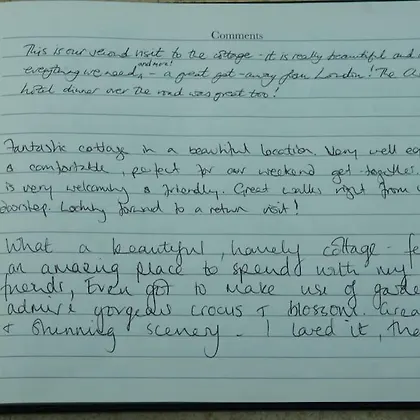 Comments
This is our second visit to the cottage - it is really beautiful and
everything we need, and more! - a great get-away from London! The
hotel dinner over the road was great too!
Fantastic cottage in a beautiful location. Very well
& comfortable, perfect for our weekend get-together.
is very welcoming & friendly. Great walks right from
doorstep. Looking forward to a return visit!
What a beautiful, homely cottage -
an amazing place to spend with my
friends, Even got to make use of
admire gorgeous crocus & blossom.
& stunning scenery. I loved it,